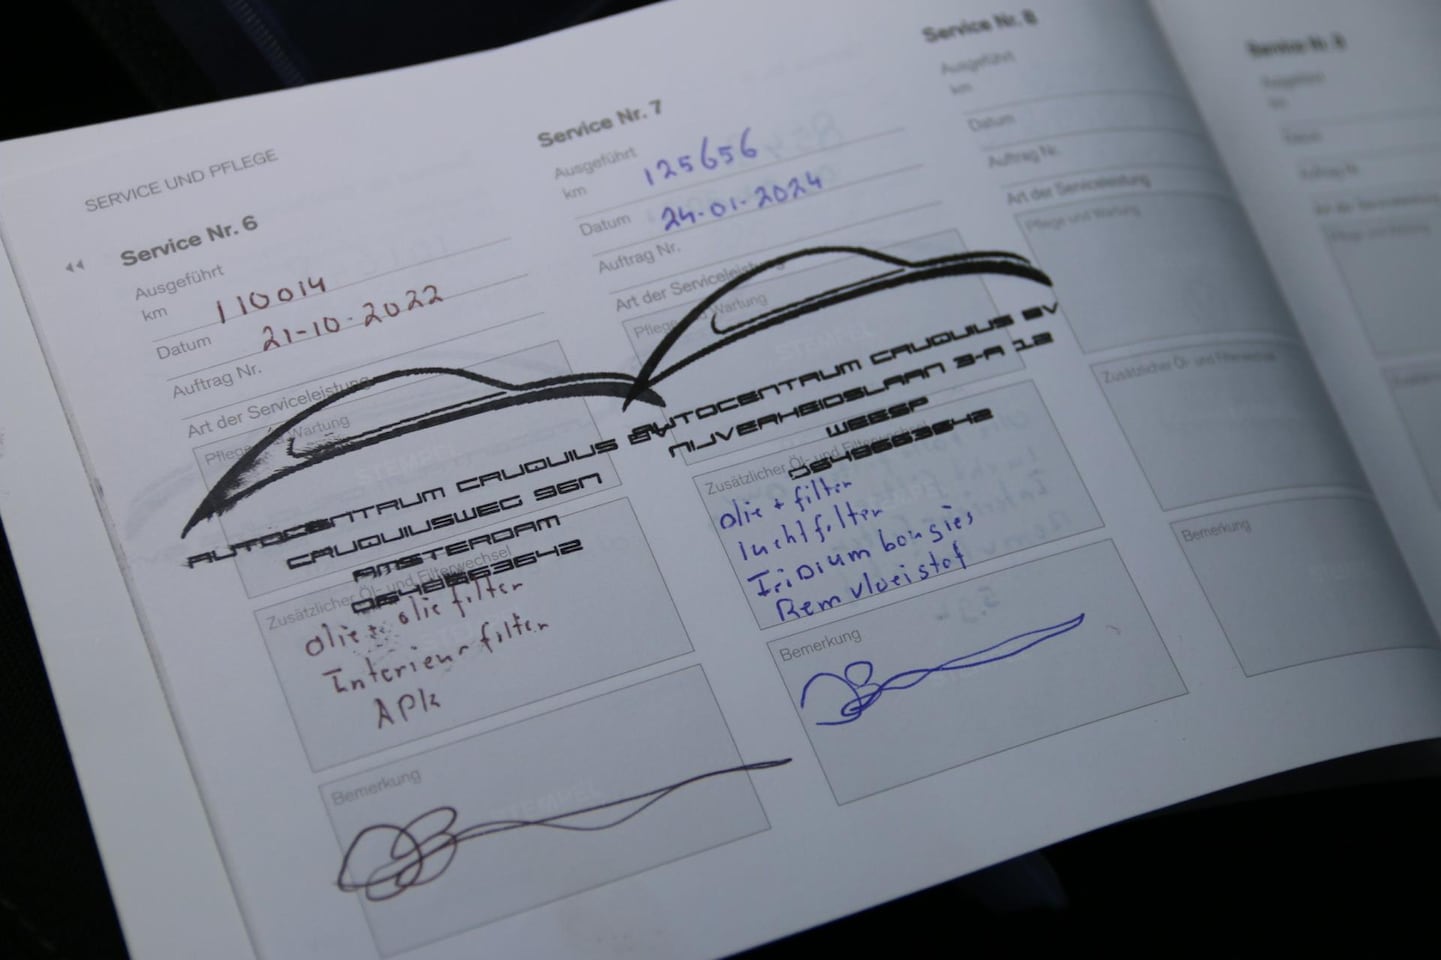 SERVICE UND PFLEGE
Service Nr. 6
Ausgeführt
km 110014
Datum 21-10-2022
Auftrag Nr.
Art der Serviceleistung
Pflege und Wartung
AUTOCENTRUM CRUQUIUS BV
CRUQUIUSWEG 96N
AMSTERDAM
0649663642
Zusätzlicher Öl- und Filterwechsel
olie + olie filter
Interieur filter
APK
Bemerkung
Service Nr. 7
Ausgeführt
km 125656
Datum 24-01-2024
Auftrag Nr.
Art der Serviceleistung
Pflege und Wartung
AUTOCENTRUM CRUQUIUS BV
NIJVERHEIDSLAAN 3-A 12
WEESP
0649663642
Zusätzlicher Öl- und Filterwechsel
olie + filter
luchtfilter
Iridium bougies
Rem vloeistof
Bemerkung
Service Nr. 8
Ausgeführt
km
Datum
Auftrag Nr.
Art der Serviceleistung
Pflege und Wartung
Zusätzlicher Öl- und Filterwechsel
Bemerkung